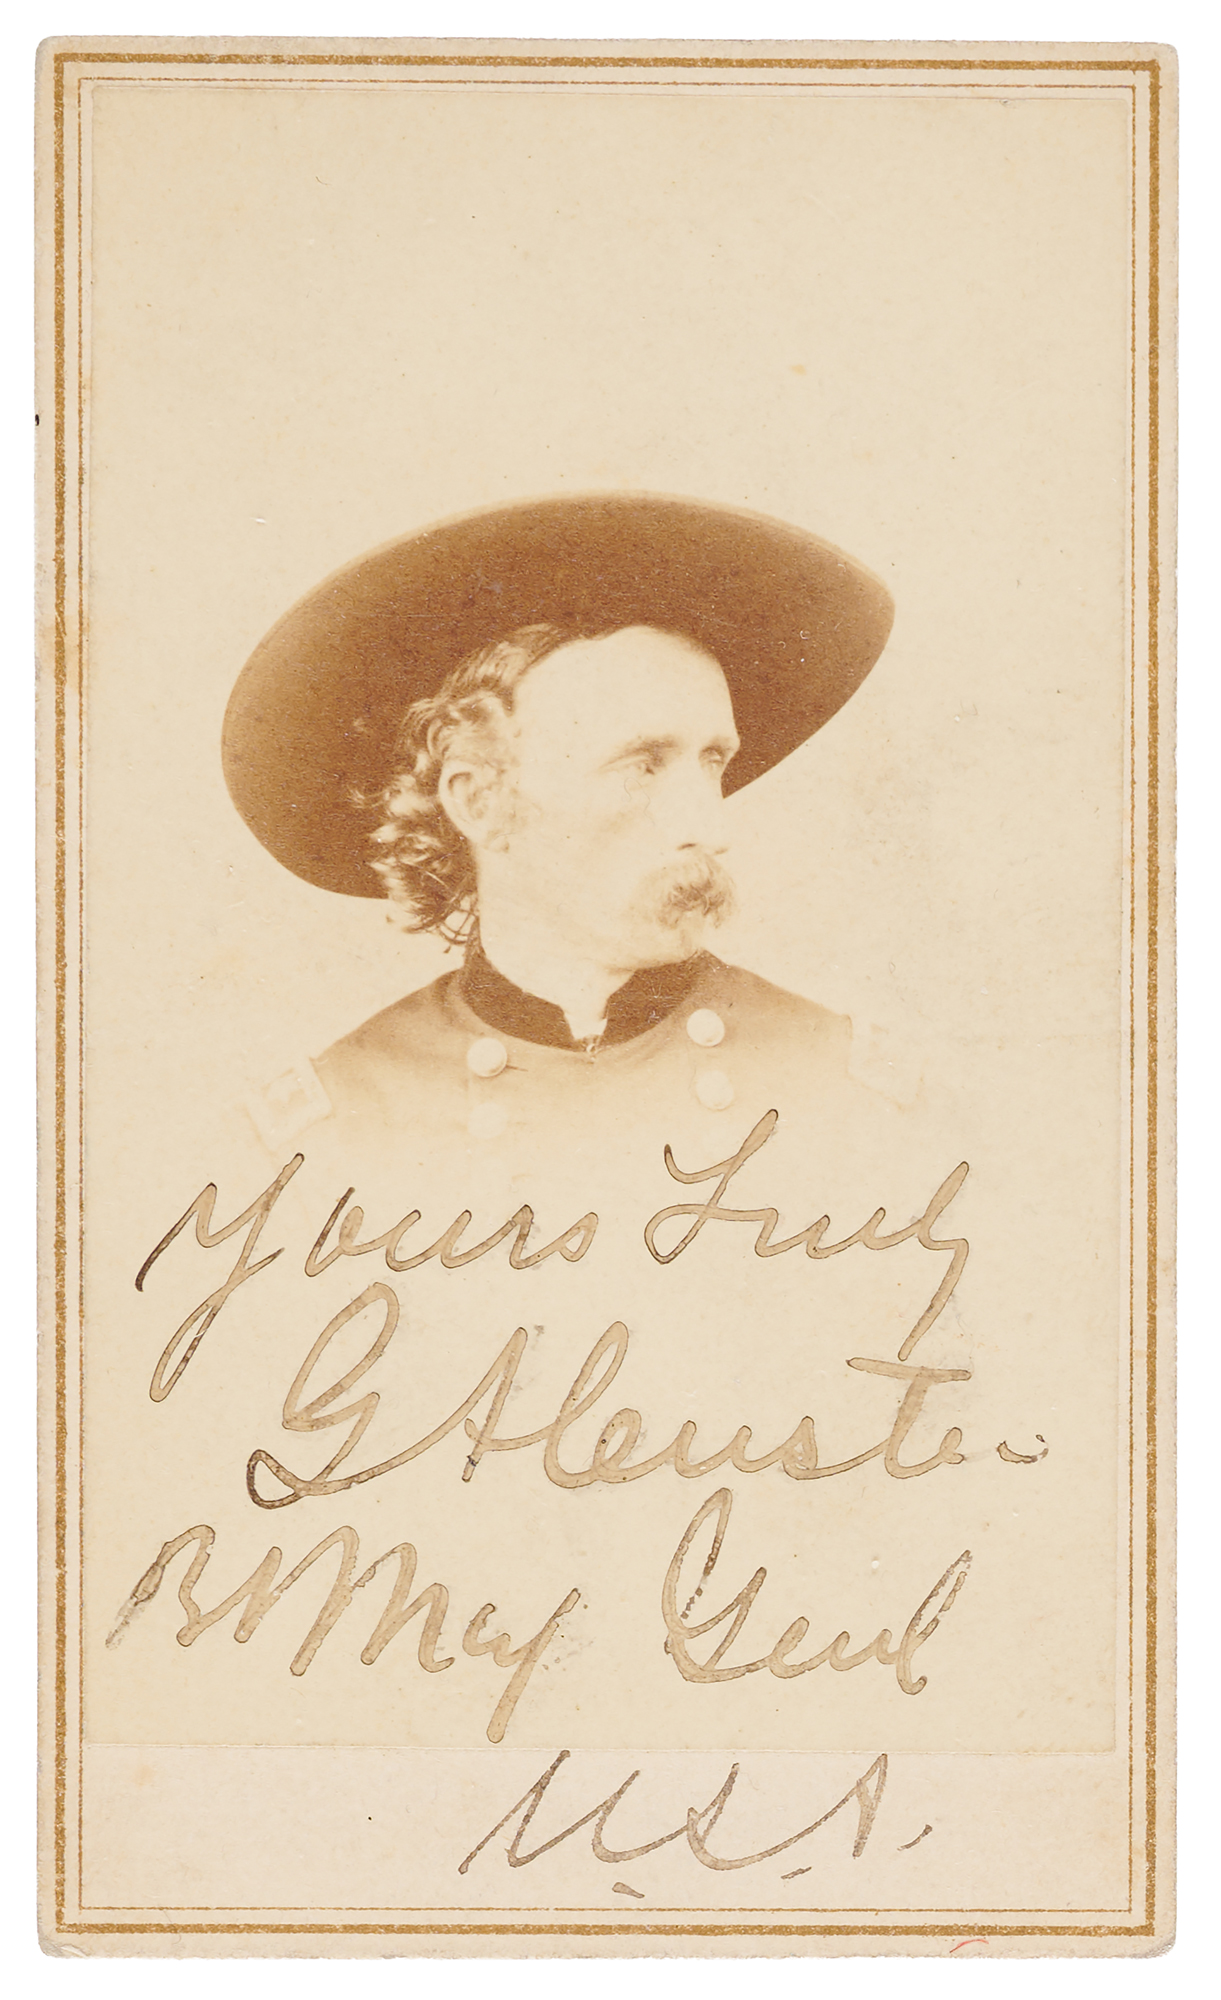 Yours Truly
GACuster
Bt Maj Genl
U.S.A.